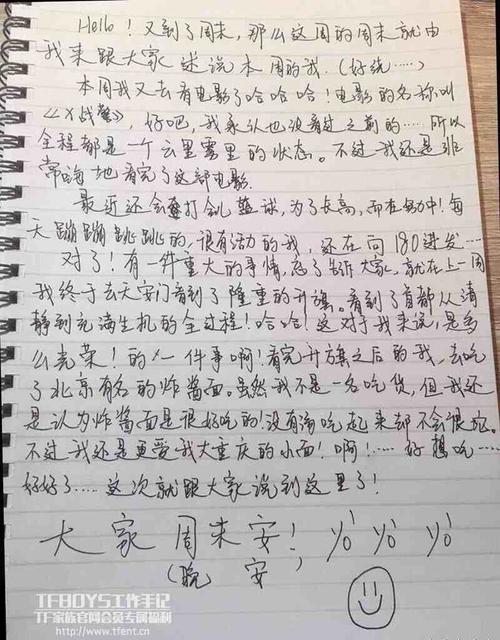 Hello！又到了周末，那么这周的周末就由
我来跟大家述说本周的我.(好绕.....)
本周我又去看电影了哈哈哈！电影的名称叫
《X战警》，好吧，我承认也没看过之前的.... 所以
全程都是一个云里雾里的状态。不过我还是非
常嗨地看完了这部电影.
最近还会打会儿篮球，为了长高，而在努力中！每
天蹦蹦跳跳的，很有活力的我，还在向180进发....
对了！有一件重大的事情，忘了告诉大家，就在上一周
我终于去天安门看到了隆重的升旗。看到了首都从清
静到充满生机的全过程！哈哈！这对于我来说，是多
么光荣！的一件事啊！看完升旗之后的我，去吃
了北京有名的炸酱面。虽然我不是一名吃货，但我还
是认为炸酱面是很好吃的！没有汤吃起来却不会很
不过我还是更爱我大重庆的小面！啊！..... 好想吃....
好好了.... 这次就跟大家说到这里了！
大家周末安！yo yo yo
(晚安)
TFBOYS工作手记
TF家族官网会员专属福利
http://www.tfent.cn